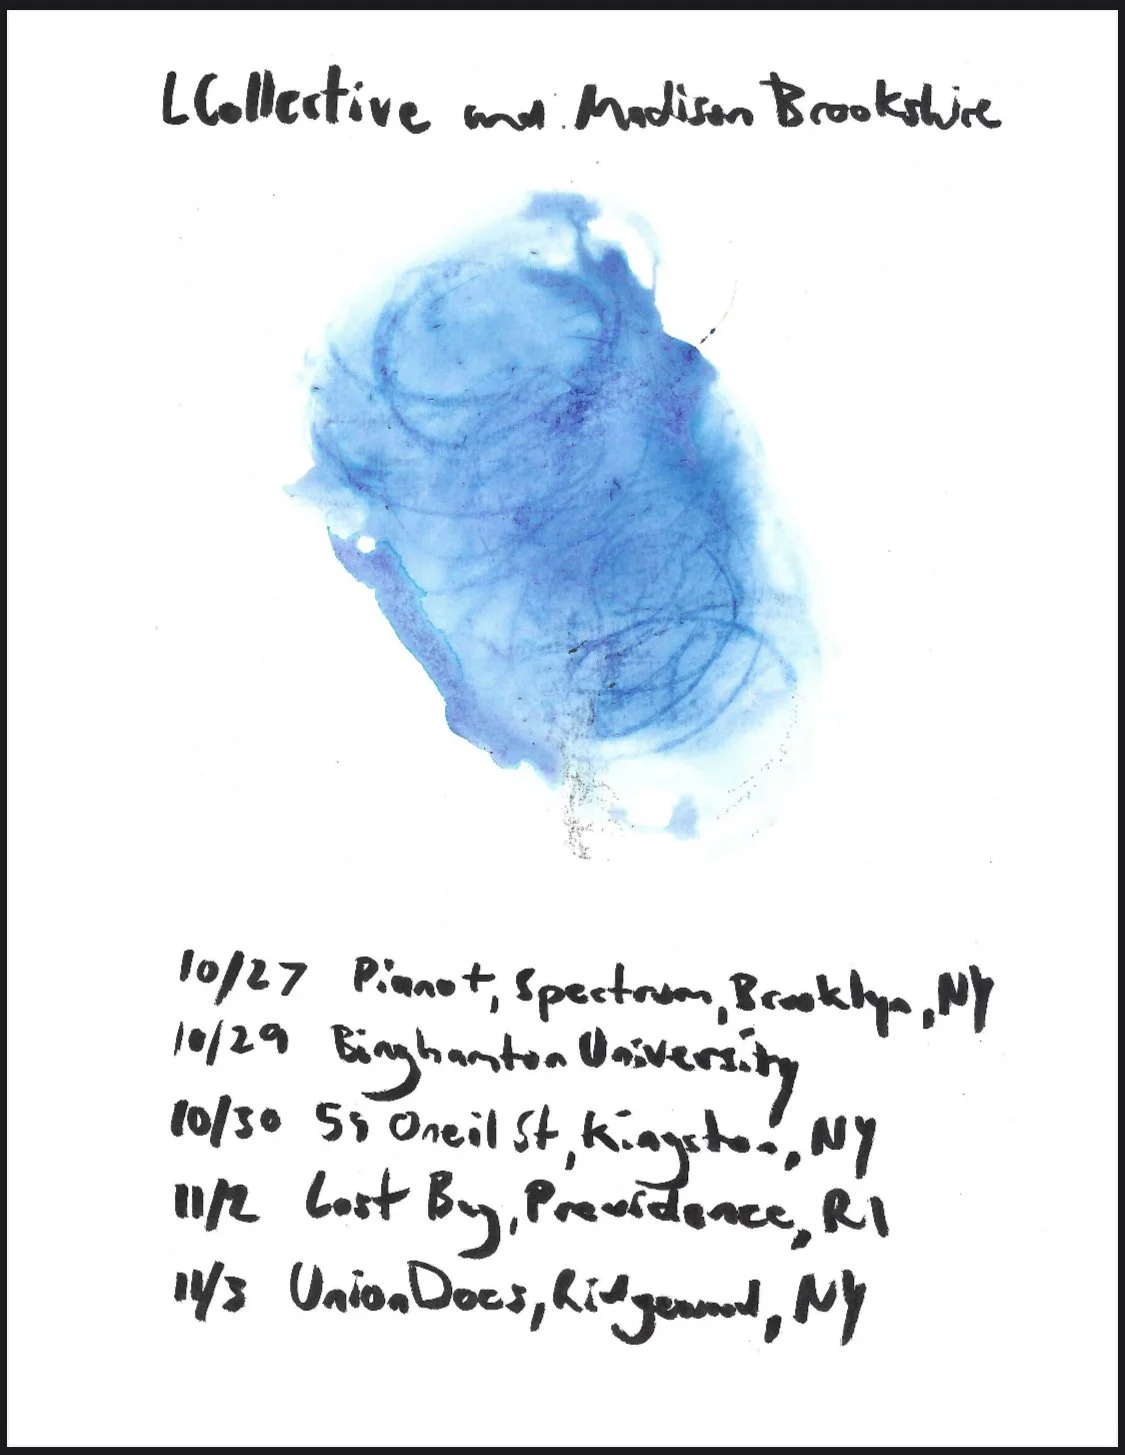 LCollective and Madison Brookshire
10/27 Piano+, Spectrum, Brooklyn, NY
10/29 Binghamton University
10/30 55 Oneil St, Kingston, NY
11/2 Lost Bag, Providence, RI
11/3 UnionDocs, Ridgewood, NY